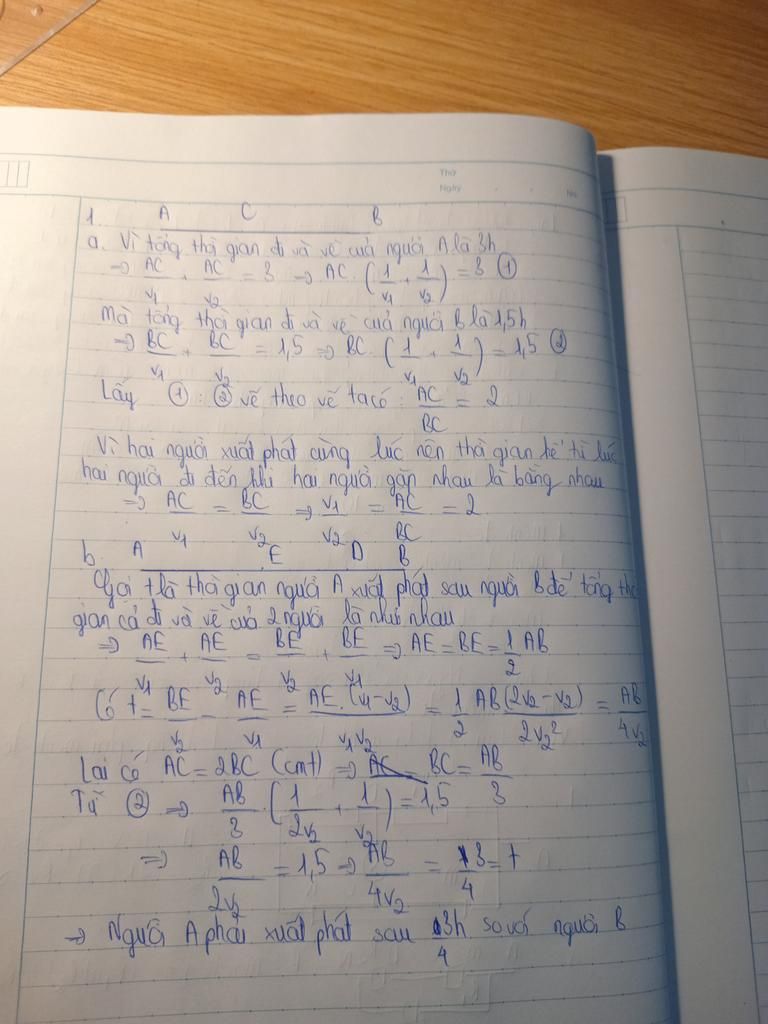 Thứ
Ngày . . No.
1. A C B
a. Vì tổng thời gian đi và về của người A là 3h
⇒ AC/v₁ + AC/v₂ = 3 ⇒ AC. (1/v₁ + 1/v₂) = 3 ①
Mà tổng thời gian đi và về của người B là 1,5h
⇒ BC/v₁ + BC/v₂ = 1,5 ⇒ BC. (1/v₁ + 1/v₂) = 1,5 ②
Lấy ① : ② vế theo vế ta có : AC/BC = 2
Vì hai người xuất phát cùng lúc nên thời gian kể từ lúc
hai người đi đến khi hai người gặp nhau là bằng nhau
⇒ AC/v₁ = BC/v₂ ⇒ v₁/v₂ = AC/BC = 2
b. A E D B
Gọi t là thời gian người A xuất phát sau người B để tổng thời
gian cả đi và về của 2 người là như nhau
⇒ AE/v₁ + AE/v₂ = BE/v₂ + BE/v₁ ⇒ AE = BE = 1/2 AB
Có t = BE/v₂ - AE/v₁ = AE.(v₁-v₂)/v₁v₂ = 1/2 AB(2v₂-v₂)/2v₂² = AB/4v₂
Lại có AC = 2BC (cmt) ⇒ BC = AB/3
Từ ② ⇒ AB/3 . (1/2v₂ + 1/v₂) = 1,5
⇒ AB/2v₂ = 1,5 ⇒ AB/4v₂ = 3/4 = t
⇒ Người A phải xuất phát sau 3/4h so với người B